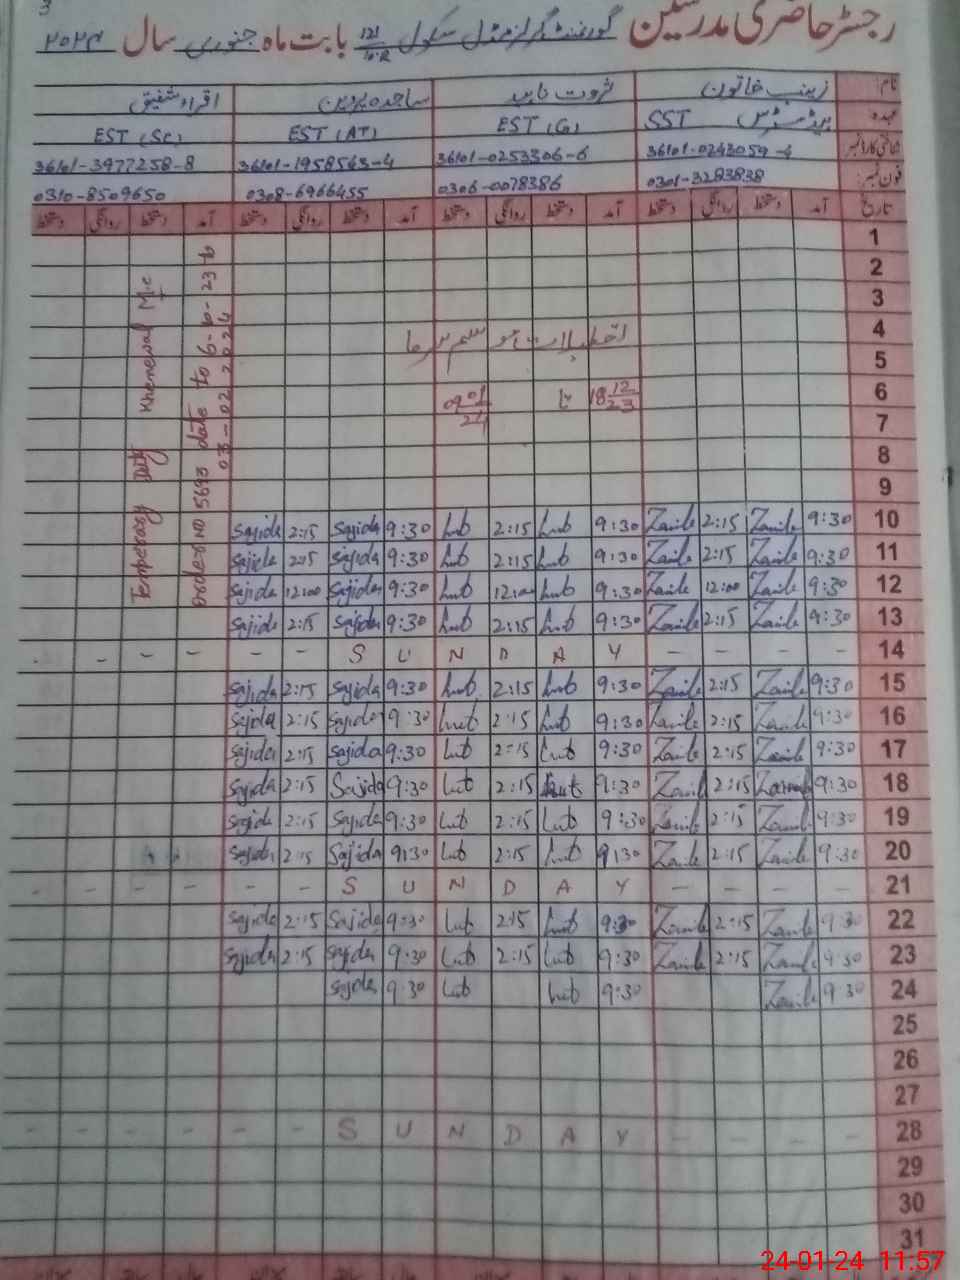 3
رجسٹر حاضری مدرسین گورنمنٹ گرلز مڈل سکول 121/10.R بابت ماہ جنوری سال ۲۰۲۴
نام: زینب خاتون ثروت ناہید ساجدہ پروین اقراء شفیق
عہدہ ہیڈ مسٹرس SST EST (G) EST (AT) EST (Sc)
شناختی کارڈ نمبر 36101-0243059-4 36101-0253306-6 36101-1958543-4 36101-3977258-8
فون نمبر: 0301-3283838 0306-0078386 0308-6966455 0310-8509650
تاریخ آمد دستخط روانگی دستخط آمد دستخط روانگی دستخط آمد دستخط روانگی دستخط آمد دستخط روانگی دستخط
1
2
3
4 موسم سرما
5
6 18 12/23 تا 09 01/24
7
8
9
Temperary Duty Khenewal M.C
order NO 5693 date to 6-10-23 to
03-02-2024
10 9:30 Zainb 2:15 Zainb 9:30 2:15 9:30 Sajida 2:15 Sajida
11 9:30 Zainb 2:15 Zainb 9:30 2:15 9:30 Sajida 2:15 Sajida
12 9:30 Zainb 12:00 Zainb 9:30 12:00 9:30 Sajida 12:00 Sajida
13 9:30 Zainb 2:15 Zainb 9:30 2:15 9:30 Sajida 2:15 Sajida
14 - - - - S U N D A Y - - - - - -
15 9:30 Zainb 2:15 Zainb 9:30 2:15 9:30 Sajida 2:15 Sajida
16 9:30 Zainb 2:15 Zainb 9:30 2:15 9:30 Sajida 2:15 Sajida
17 9:30 Zainb 2:15 Zainb 9:30 2:15 9:30 Sajida 2:15 Sajida
18 9:30 Zainb 2:15 Zainb 9:30 2:15 9:30 Sajida 2:15 Sajida
19 9:30 Zainb 2:15 Zainb 9:30 2:15 9:30 Sajida 2:15 Sajida
20 9:30 Zainb 2:15 Zainb 9:30 2:15 9:30 Sajida 2:15 Sajida
21 - - - - S U N D A Y - - - - - -
22 9:30 Zainb 2:15 Zainb 9:30 2:15 9:30 Sajida 2:15 Sajida
23 9:30 Zainb 2:15 Zainb 9:30 2:15 9:30 Sajida 2:15 Sajida
24 9:30 Zainb 9:30 9:30 Sajida
25
26
27
28 - - - - S U N D A Y - - - - - -
29
30
31
24-01-24 11:57